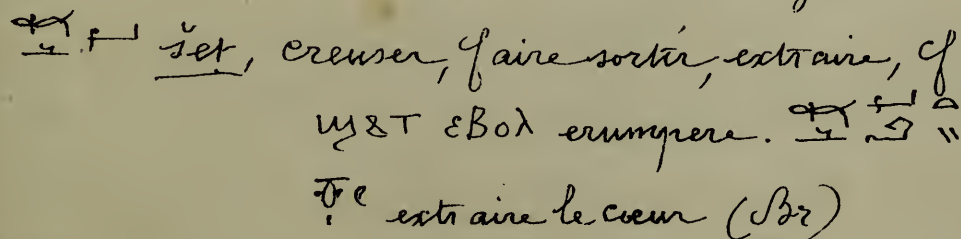 šet, creuser, faire sortir, extraire, cf
ϣⲁⲧ ⲉⲃⲟⲗ erumpere.
extraire le cœur (Br)